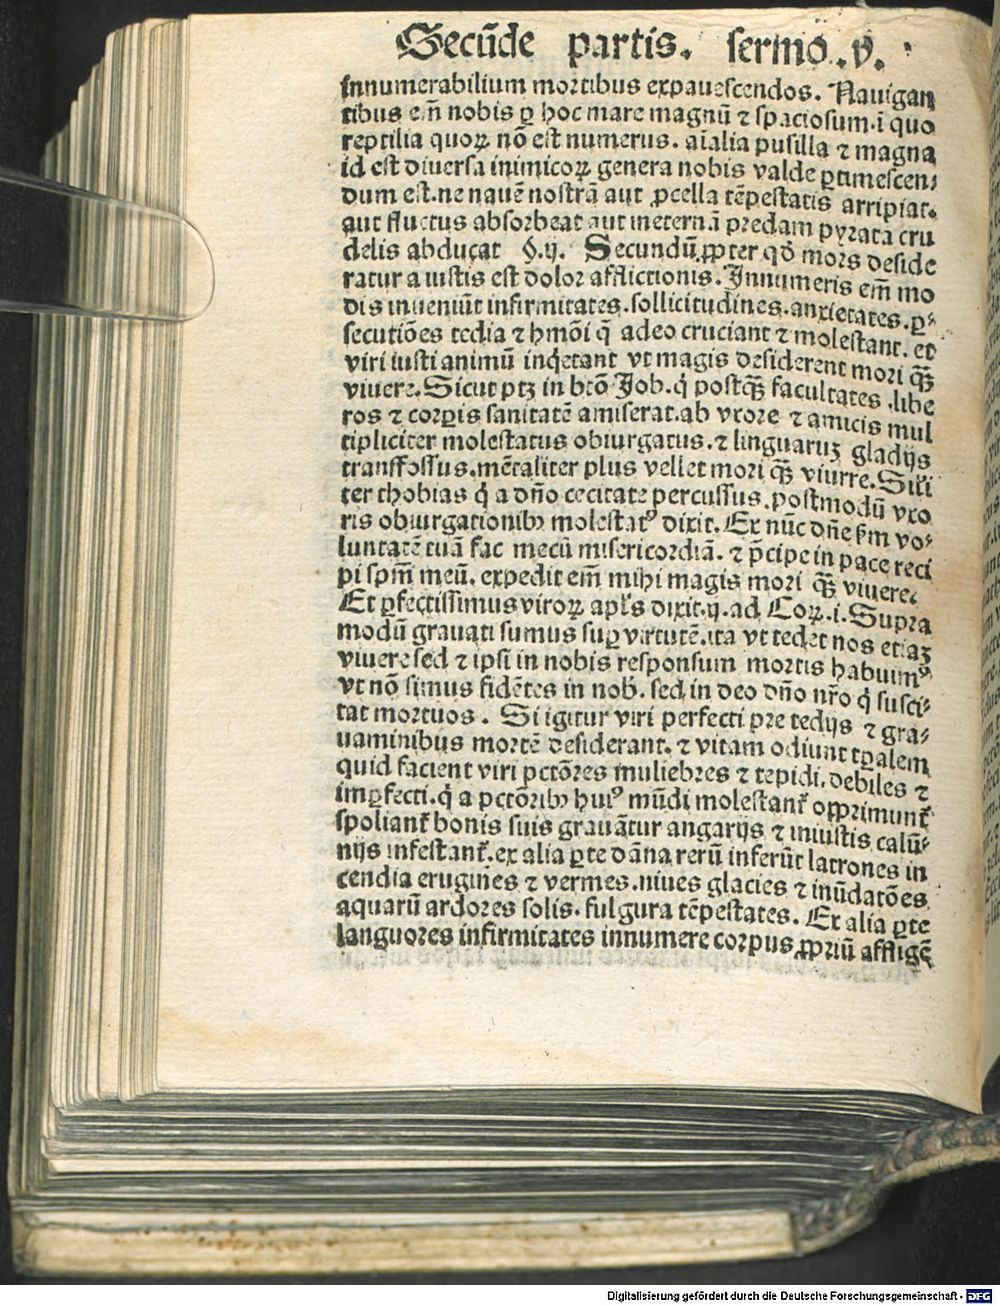 Secūde partis. sermo .v.
innumerabilium mortibus expauescendos. Nauigan
tibus em̄ nobis ꝑ hoc mare magnū ⁊ spaciosum·i quo
reptilia quoꝝ nō est numerus. aīalia pusilla ⁊ magna
id est diuersa inimicoꝝ genera nobis valde ꝑtimescen⸗
dum est.ne nauē nostrā aut ꝓcella tēpestatis arripiat.
aut fluctus absorbeat aut in eternā predam pyrata cru
delis abducat §.ij. Secundū ꝓpter qd̄ mors deside
ratur a iustis est dolor afflictionis. Innumeris em̄ mo
dis inueniūt infirmitates.sollicitudines.anxietates.ꝑ⸗
secutiōes tedia ⁊ hmōi q̄ adeo cruciant ⁊ molestant. et
viri iusti animū inq̇etant vt magis desiderent mori qȝ̄
viuere.Sicut ptȝ in btō Job.q̇ postqȝ̄ facultates .libe
ros ⁊ corꝑis sanitatē amiserat.ab vxore ⁊ amicis mul
tipliciter molestatus obiurgatus.⁊ linguaruȝ gladijs
transfossus.mētaliter plus vellet mori qȝ̄ viuere.Sili
ter thobias q̇ a dn̄o cecitate percussus.postmodū vxo
ris obiurgationibꝫ molestatꝰ dixit. Et nūc dn̄e ẜm vo⸗
luntatē tuā fac mecū misericordiā. ⁊ p̄cipe in pace reci
pi spm̄ meū. expedit em̄ mihi magis mori qȝ̄ viuere.
Et ꝑfectissimus viroꝝ apl's dixit.ij.ad Coꝝ.i.Supra
modū grauati sumus sup̱ virtutē.ita vt tedet nos etiaȝ
viuere sed ⁊ ipsi in nobis responsum mortis habuimꝰ
vt nō simus fidētes in nob̄. sed in deo dn̄o nr̄o q̇ susci⸗
tat mortuos. Si igitur viri perfecti pre tedijs ⁊ gra⸗
uaminibus mortē desiderant. ⁊ vitam odiunt tꝑalem
quid facient viri pctōres muliebres ⁊ tepidi. debiles ⁊
imꝑfecti.q̇ a pctōribꝫ huiꝰ mūdi molestant᷑ opprimunt᷑
spoliant᷑ bonis suis grauātur angarijs ⁊ iniustis calū⸗
nijs infestant᷑.ex alia ꝑte dāna rerū inferūt latrones in
cendia erugines ⁊ vermes.niues glacies ⁊ inūdatōes
aquarū ardores solis. fulgura tēpestates. Et alia ꝑte
languores infirmitates innumere corpus ꝓpriū affligē
Digitalisierung gefördert durch die Deutsche Forschungsgemeinschaft - DFG